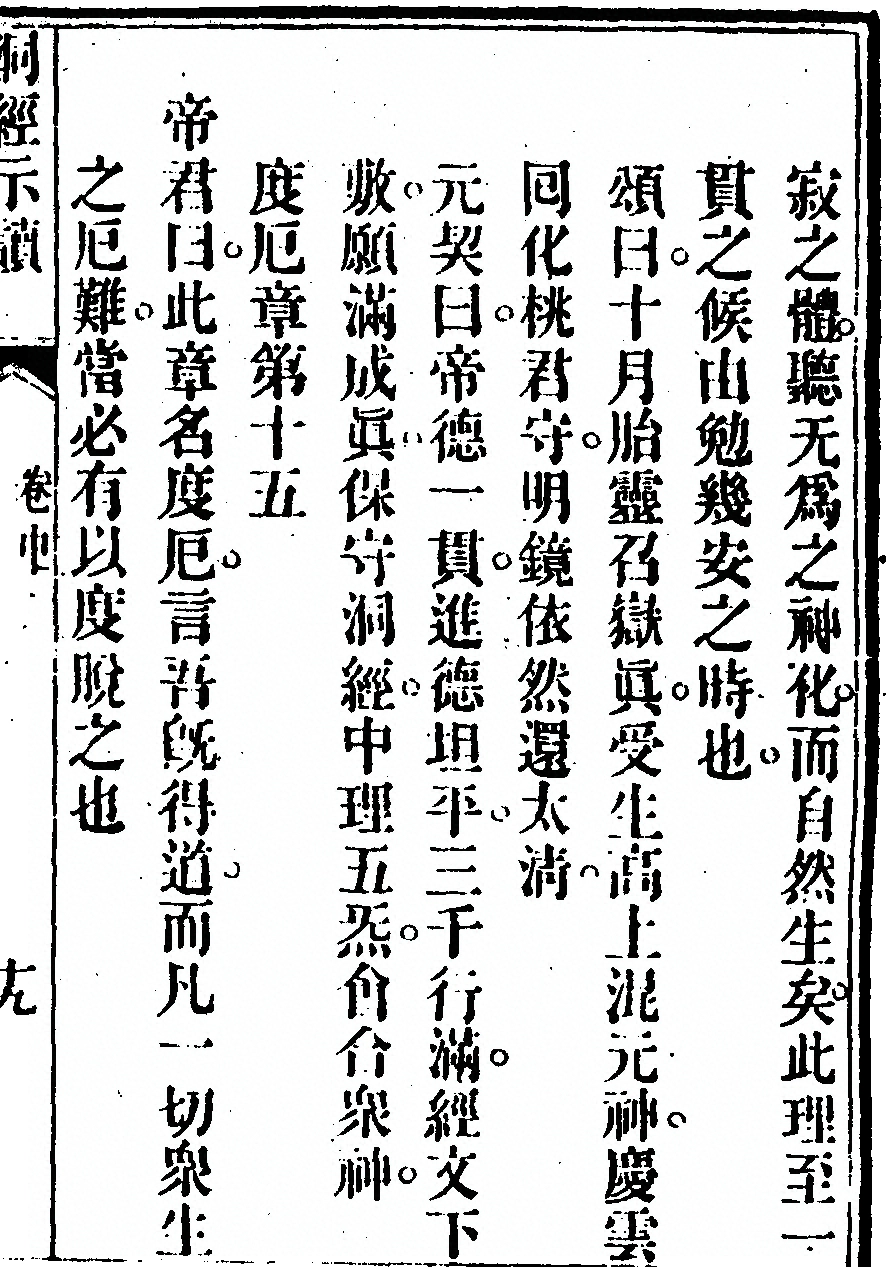 寂之體。聽无爲之神化。而自然生矣。此理至一
貫之候由勉幾安之時也。
頌曰。十月胎靈召嶽眞。受生高上混元神。慶雲
回化桃君守。明鏡依然還太淸。
元契曰。帝德一貫。進德坦平。三千行滿。經文下
敷。願滿成眞。保守洞經。中理五炁。會合衆神。
度厄章第十五
帝君曰。此章名度厄。言吾旣得道。而凡一切衆生
之厄難。當必有以度脫之也
洞經示讀
卷中
十九